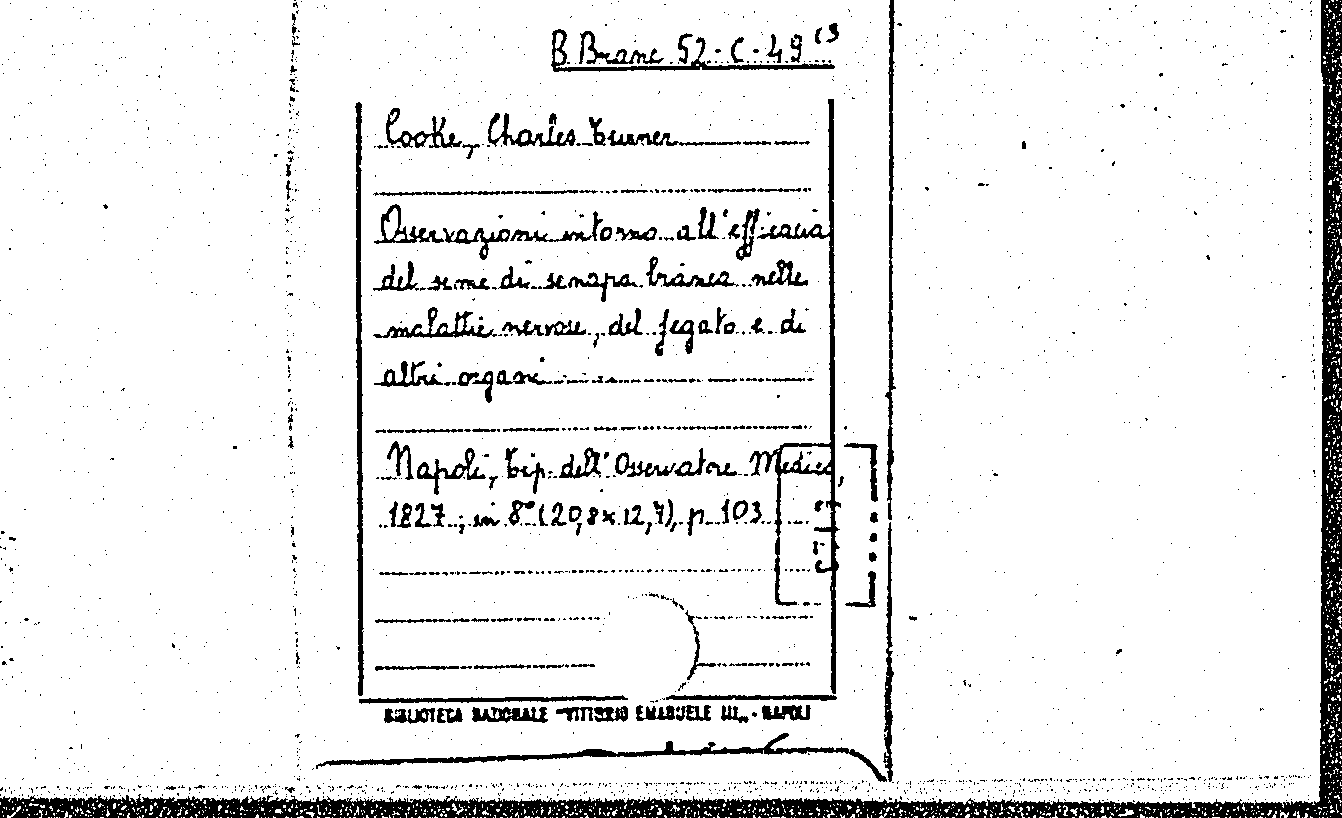 B. Branc 52-C-49 (3
Cooke, Charles Turner
Osservazioni intorno all'efficacia
del seme di senapa bianca nelle
malattie nervose, del fegato e di
altri organi
Napoli, Tip. dell'Osservatore Medico,
1827; in 8° (20,8x12,7), p. 103
BIBLIOTECA NAZIONALE "VITTORIO EMANUELE III„ - NAPOLI